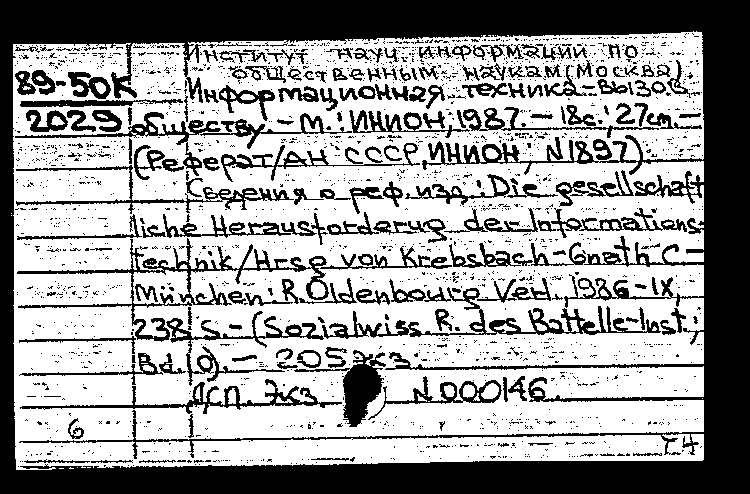 Институт науч. информации по
общественным наукам (Москва).
89-50К Информационная техника-вызов
2029 обществу. - М.: ИНИОН, 1987. - 18с.; 27см. -
(Реферат/АН СССР, ИНИОН; N1897).
Сведения о реф. изд.: Die gesellschaft
liche Herausforderug der Informations-
technik/Hrsg von Krebsbach-Gnath C -
München: R. Oldenbourg Verl., 1986-IX,
238 S. - (Sozialwiss. R. des Battelle-Inst.;
Bd. 10). - 205 экз.
ДСП. Экз. N 000146.
6
T4